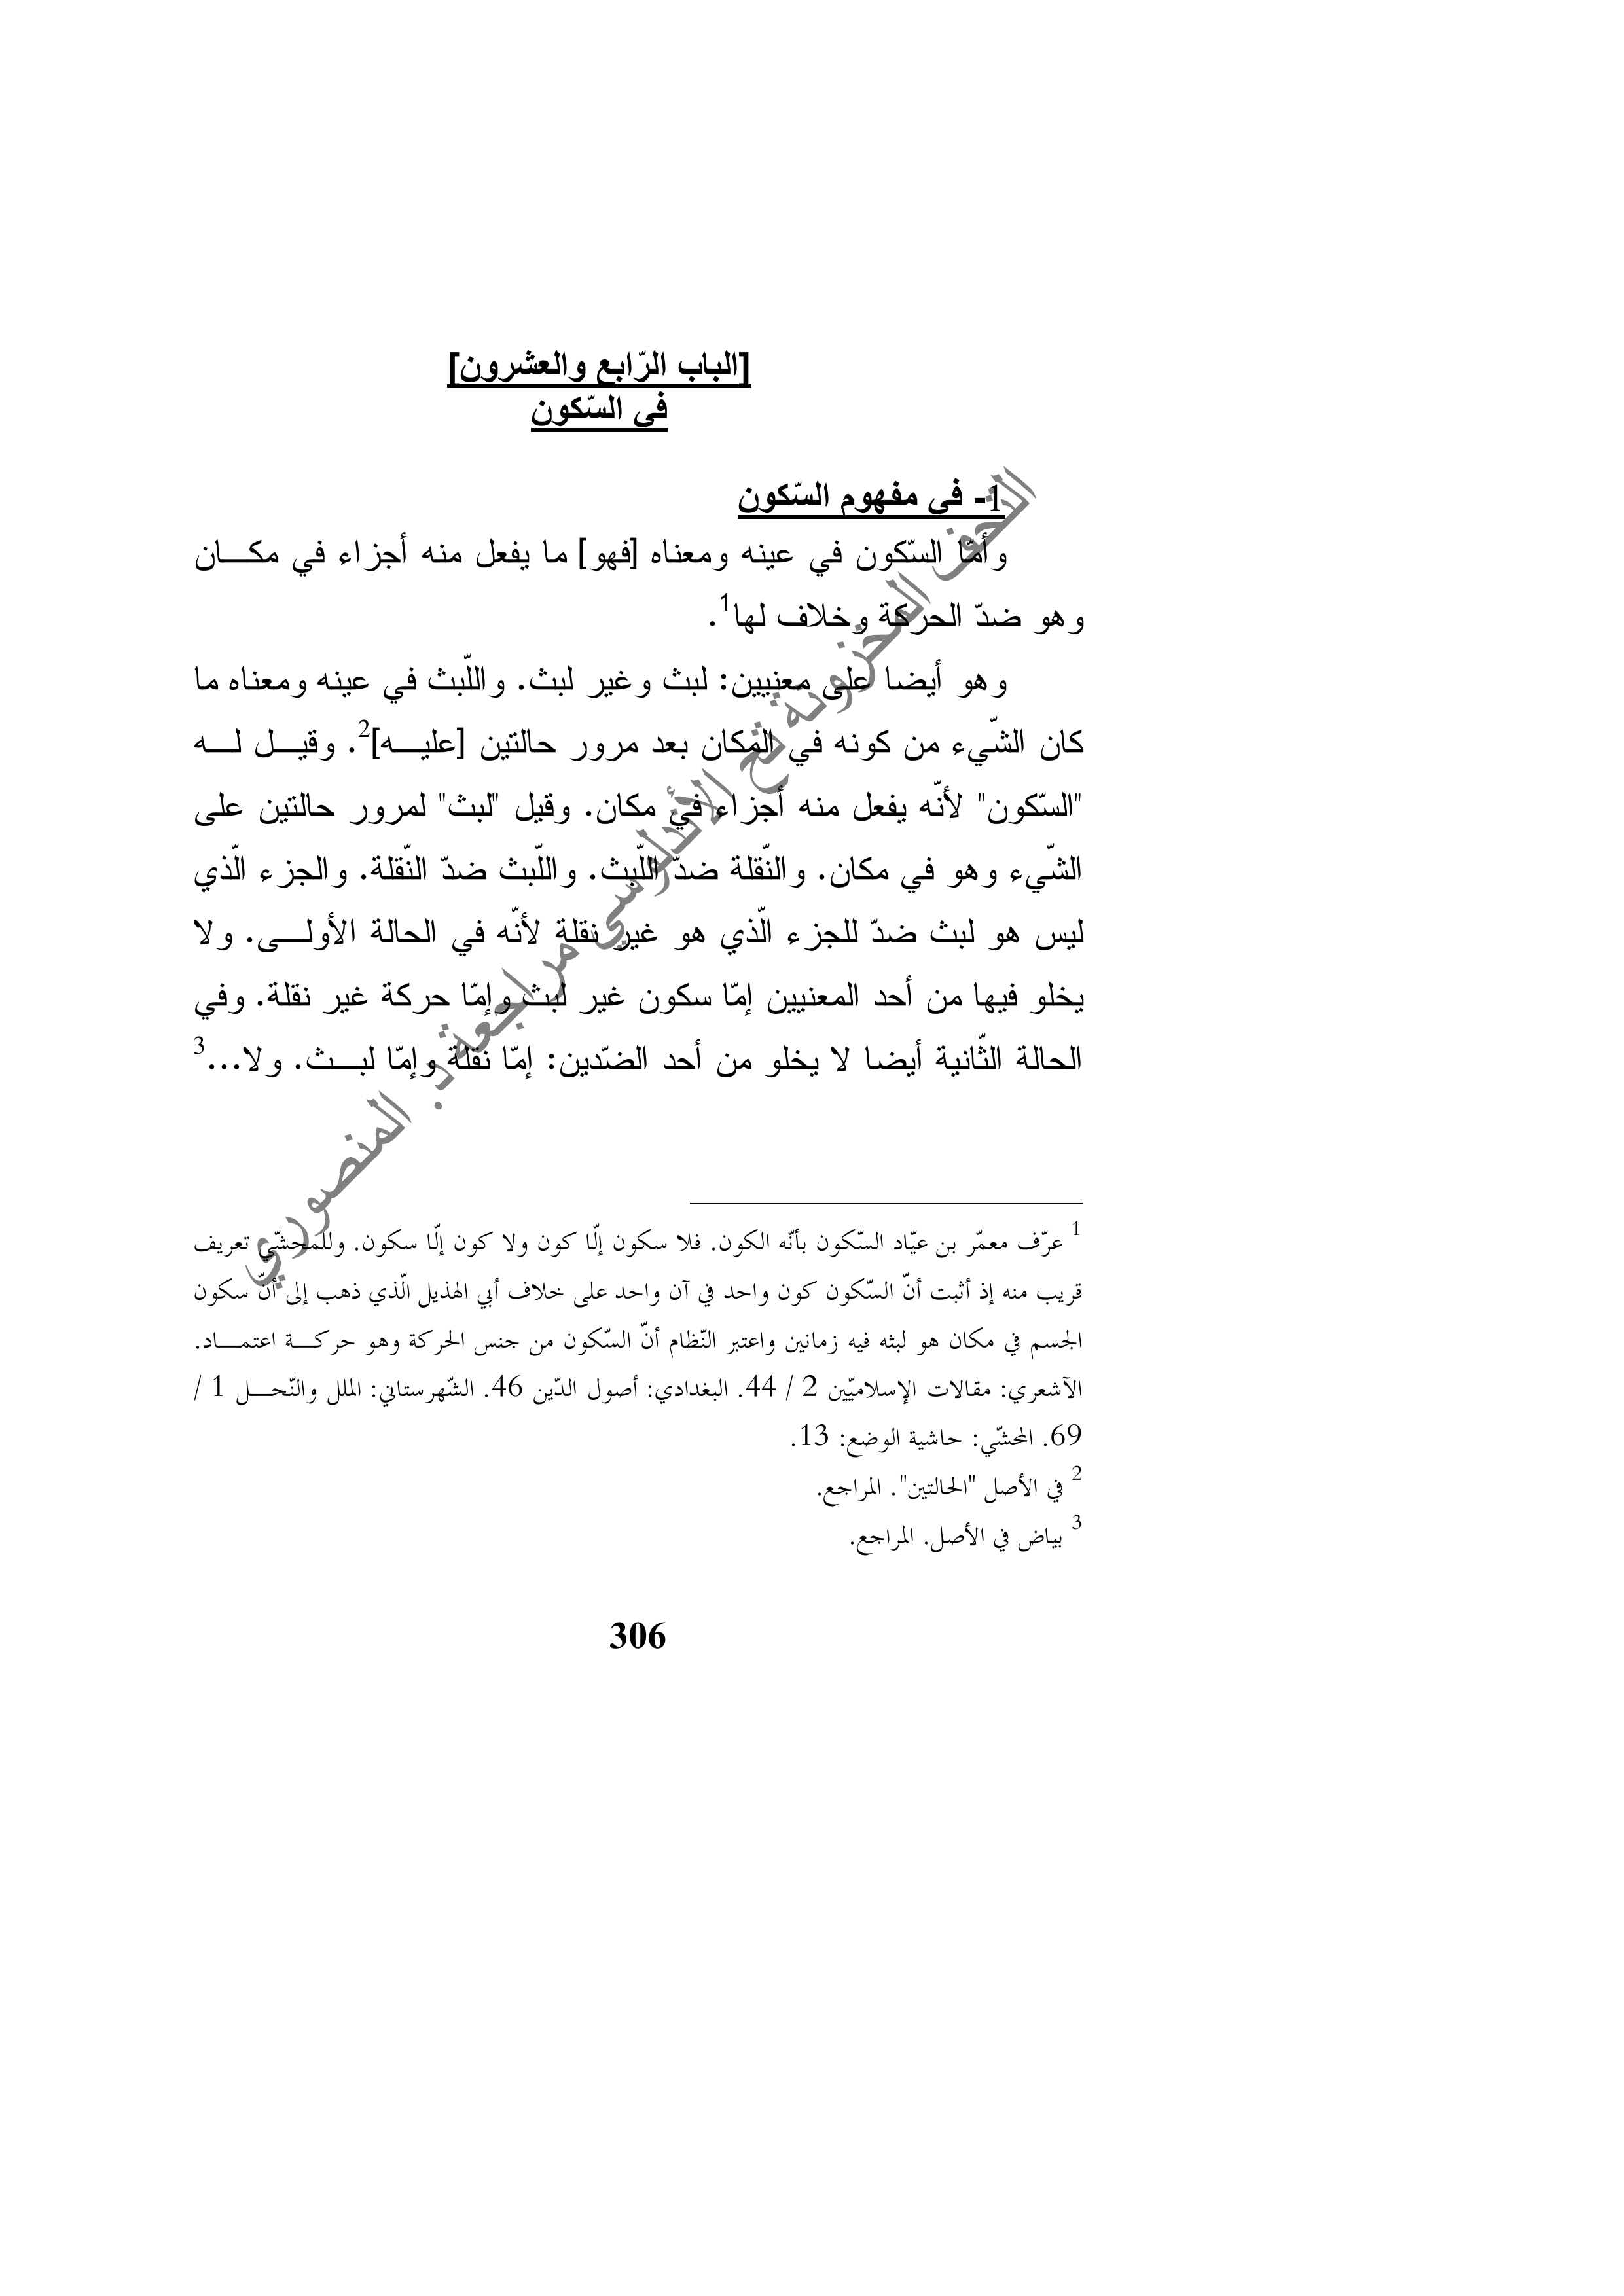 [الباب الرّابع والعشرون]
في السّكون
1- في مفهوم السّكون
وأمّا السّكون في عينه ومعناه [فهو] ما يفعل منه أجزاء في مكـــان
وهو ضدّ الحركة وخلاف لها1.
وهو أيضا على معنيين: لبث وغير لبث. واللّبث في عينه ومعناه ما
كان الشّيء من كونه في المكان بعد مرور حالتين [عليـــه]2. وقيـــل لـــه
"السّكون" لأنّه يفعل منه أجزاء في مكان. وقيل "لبث" لمرور حالتين على
الشّيء وهو في مكان. والنّقلة ضدّ اللّبث. واللّبث ضدّ النّقلة. والجزء الّذي
ليس هو لبث ضدّ للجزء الّذي هو غير نقلة لأنّه في الحالة الأولـــى. ولا
يخلو فيها من أحد المعنيين إمّا سكون غير لبث وإمّا حركة غير نقلة. وفي
الحالة الثّانية أيضا لا يخلو من أحد الضّدين: إمّا نقلة وإمّا لبـــث. ولا...3
1 عرّف معمّر بن عيّاد السّكون بأنّه الكون. فلا سكون إلّا كون ولا كون إلّا سكون. وللمحشّي تعريف
قريب منه إذ أثبت أنّ السّكون كون واحد في آن واحد على خلاف أبي الهذيل الّذي ذهب إلى أنّ سكون
الجسم في مكان هو لبثه فيه زمانين واعتبر النّظام أنّ السّكون من جنس الحركة وهو حركـــة اعتمـــاد.
الآشعري: مقالات الإسلاميّين 2 / 44. البغدادي: أصول الدّين 46. الشّهرستاني: الملل والنّحـــل 1 /
69. المحشّي: حاشية الوضع: 13.
2 في الأصل "الحالتين". المراجع.
3 بياض في الأصل. المراجع.
306
التحف المخزونة تح الأندلوسي مراجعة د. المنصوري